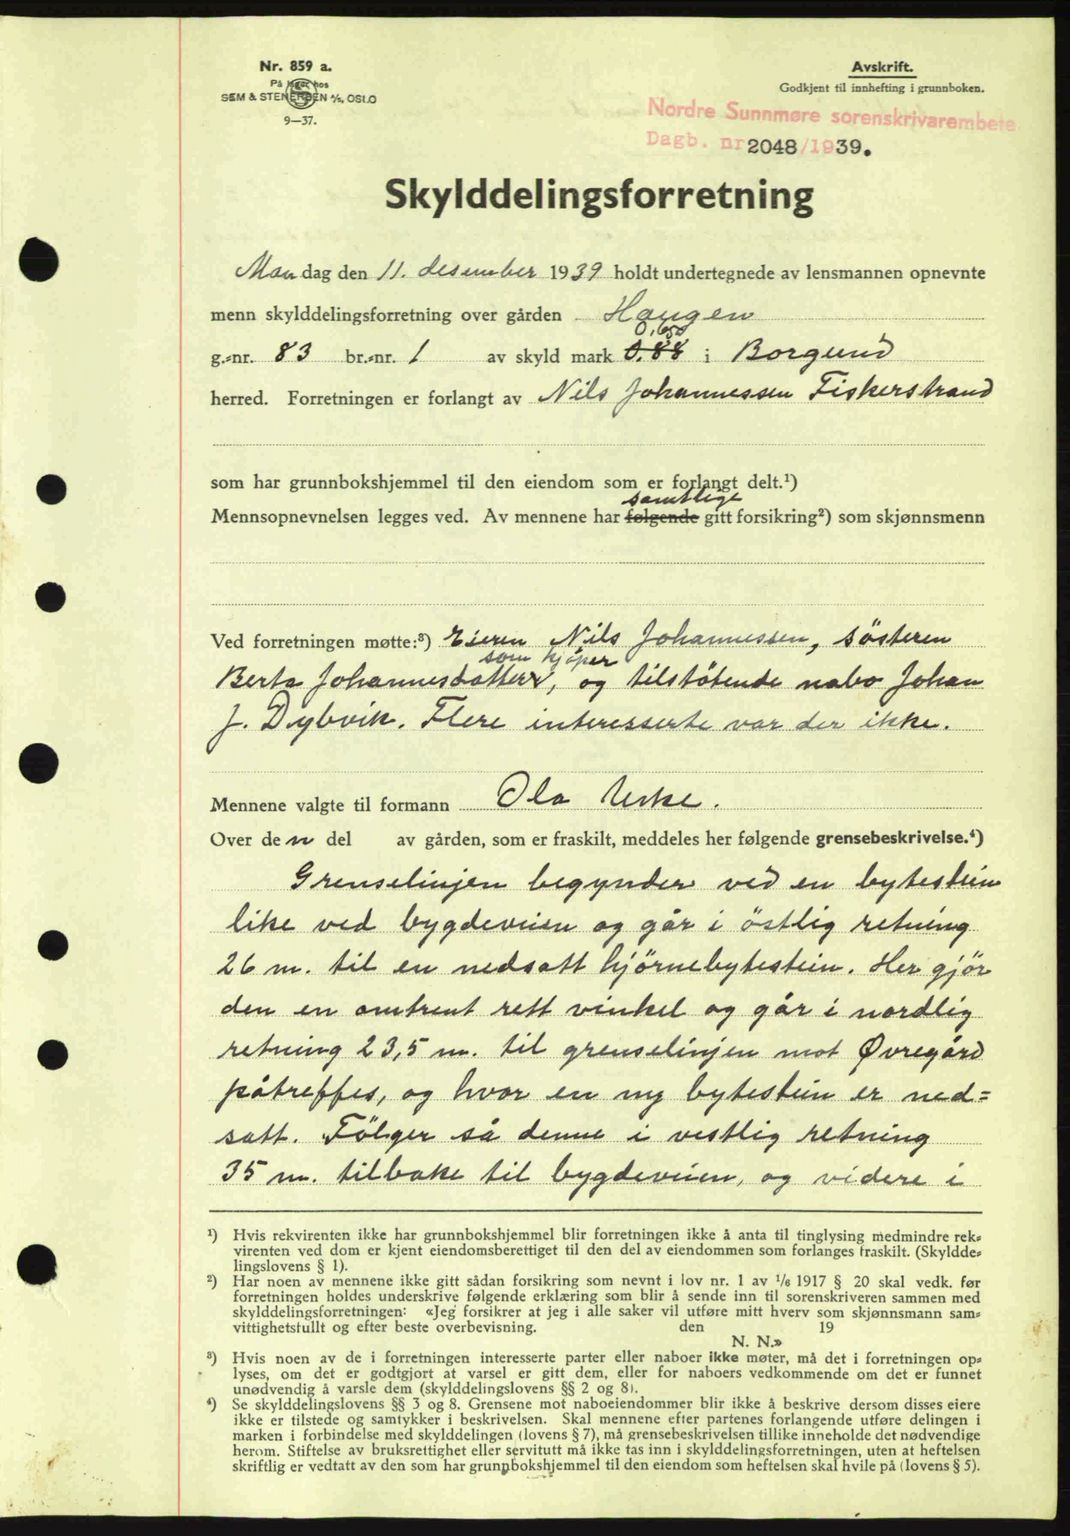 Nr. 859 a.
På lager hos
SEM & STENERSEN A/S, OSLO
9—37.
Avskrift.
Godkjent til innhefting i grunnboken.
Nordre Sunnmøre sorenskrivarembete
Dagb. nr 2048/1939.
Skylddelingsforretning
Mandag den 11. desember 1939 holdt undertegnede av lensmannen opnevnte
menn skylddelingsforretning over gården Haugen
0,650
g.-nr. 83 br.-nr. 1 av skyld mark 0.88 i Borgund
herred. Forretningen er forlangt av Nils Johannessen Fiskerstrand
som har grunnbokshjemmel til den eiendom som er forlangt delt.¹)
samtlige
Mennsopnevnelsen legges ved. Av mennene har følgende gitt forsikring²) som skjønnsmenn
Ved forretningen møtte:³) Eieren Nils Johannessen, søsteren
som kjøper
Berta Johannesdatter, og tilstøtende nabo Johan
J. Dybvik. Flere interesserte var der ikke.
Mennene valgte til formann Ola Urke.
Over den del av gården, som er fraskilt, meddeles her følgende grensebeskrivelse.⁴)
Grenselinjen begynder ved en bytestein
like ved bygdeveien og går i östlig retning
26 m. til en nedsatt hjörnebytestein. Her gjör
den en omtrent rett vinkel og går i nordlig
retning 23,5 m. til grenselinjen mot Øvregård
påtreffes, og hvor en ny bytestein er ned=
satt. Fölger så denne i vestlig retning
35 m. tilbake til bygdeveien, og videre i
¹) Hvis rekvirenten ikke har grunnbokshjemmel blir forretningen ikke å anta til tinglysing medmindre rek-
virenten ved dom er kjent eiendomsberettiget til den del av eiendommen som forlanges fraskilt. (Skyldde-
lingslovens § 1).
²) Har noen av mennene ikke gitt sådan forsikring som nevnt i lov nr. 1 av 1/6 1917 § 20 skal vedk. før
forretningen holdes underskrive følgende erklæring som blir å sende inn til sorenskriveren sammen med
skylddelingsforretningen: «Jeg forsikrer at jeg i alle saker vil utføre mitt hverv som skjønnsmann sam-
vittighetsfullt og efter beste overbevisning. den 19
N. N.»
³) Hvis noen av de i forretningen interesserte parter eller naboer ikke møter, må det i forretningen op-
lyses, om det er godtgjort at varsel er gitt dem, eller for naboers vedkommende om det er funnet
unødvendig å varsle dem (skylddelingslovens §§ 2 og 8).
⁴) Se skylddelingslovens §§ 3 og 8. Grensene mot naboeiendommer blir ikke å beskrive dersom disses eiere
ikke er tilstede og samtykker i beskrivelsen. Skal mennene efter partenes forlangende utføre delingen i
marken i forbindelse med skylddelingen (lovens § 7), må grensebeskrivelsen tillike inneholde det nødvendige
herom. Stiftelse av bruksrettighet eller servitutt må ikke tas inn i skylddelingsforretningen, uten at heftelsen
skriftlig er vedtatt av den som har grunnbokshjemmel til den eiendom som heftelsen skal hvile på (lovens § 5).